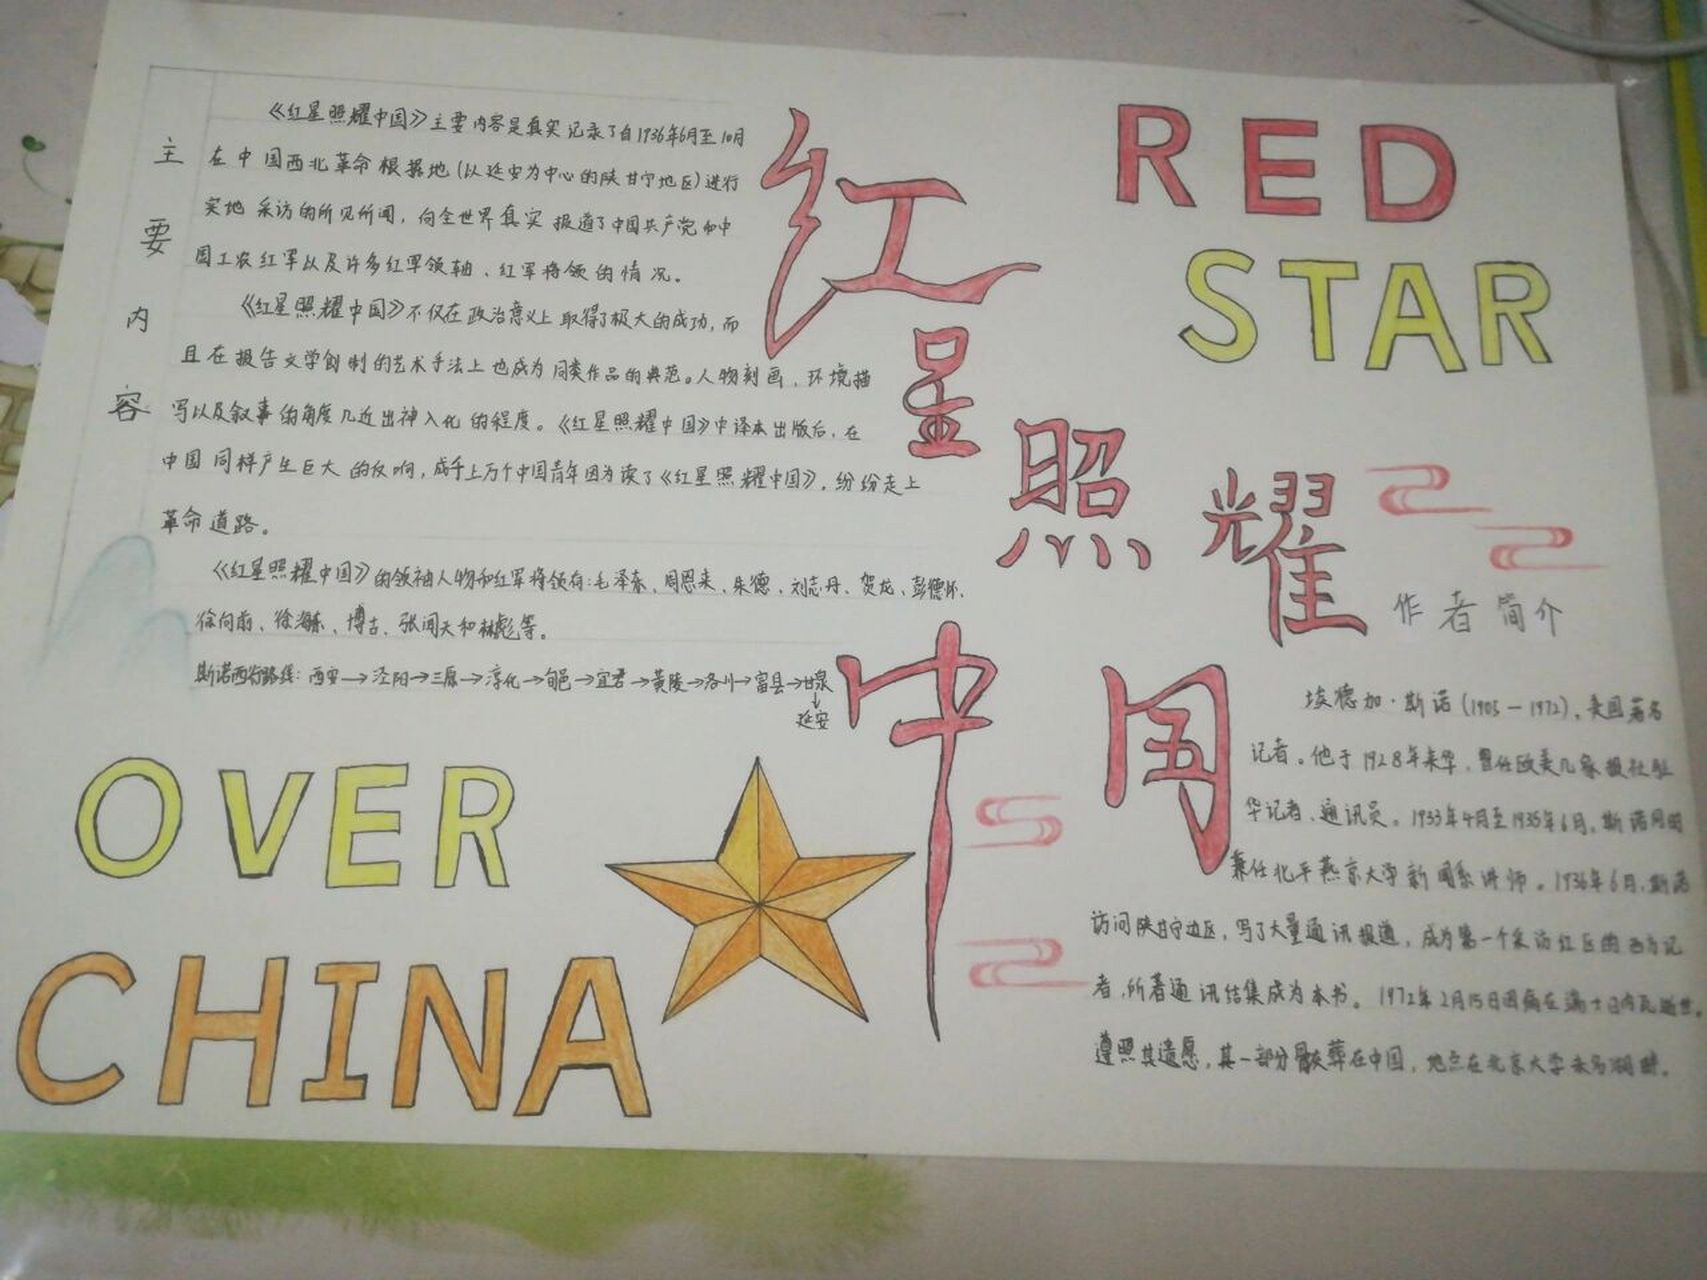 主要内容
《红星照耀中国》主要内容是真实记录了自1936年6月至10月
在中国西北革命根据地(以延安为中心的陕甘宁地区)进行
实地采访的所见所闻，向全世界真实报道了中国共产党和中
国工农红军以及许多红军领袖、红军将领的情况。
《红星照耀中国》不仅在政治意义上取得了极大的成功，而
且在报告文学创制的艺术手法上也成为同类作品的典范。人物刻画，环境描
写以及叙事的角度几近出神入化的程度。《红星照耀中国》中译本出版后，在
中国同样产生巨大的反响，成千上万个中国青年因为读了《红星照耀中国》，纷纷走上
革命道路。
《红星照耀中国》的领袖人物和红军将领有：毛泽东、周恩来、朱德、刘志丹、贺龙、彭德怀、
徐向前、徐海东、博古、张闻天和林彪等。
斯诺西行路线：西安→泾阳→三原→淳化→旬邑→宜君→黄陵→洛川→富县→甘泉
↓
延安
OVER
CHINA
红星照耀中国
RED
STAR
作者简介
埃德加·斯诺(1905—1972)，美国著名
记者。他于1928年来华，曾任欧美几家报社驻
华记者、通讯员。1933年4月至1935年6月，斯诺同时
兼任北平燕京大学新闻系讲师。1936年6月，斯诺
访问陕甘宁边区，写了大量通讯报道，成为第一个采访红区的西方记
者，所著通讯结集成为本书。1972年2月15日因病在瑞士日内瓦逝世。
遵照其遗愿，其一部分骨灰葬在中国，地点在北京大学未名湖畔。